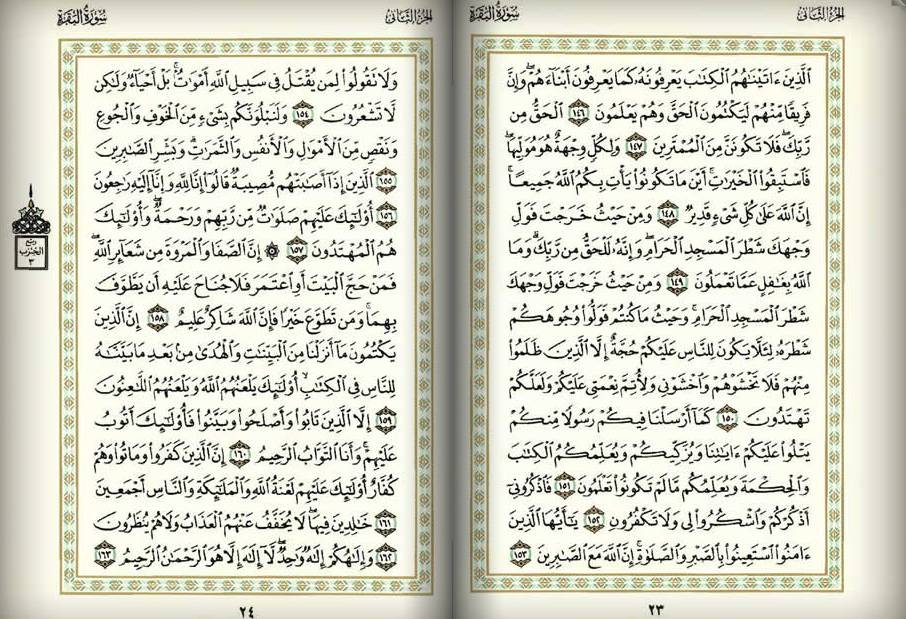 الجزء الثاني
سورة البقرة
الَّذِينَ ءَاتَيْنَٰهُمُ الْكِتَٰبَ يَعْرِفُونَهُۥ كَمَا يَعْرِفُونَ أَبْنَآءَهُمْ ۖ وَإِنَّ
فَرِيقًا مِّنْهُمْ لَيَكْتُمُونَ الْحَقَّ وَهُمْ يَعْلَمُونَ ١٤٦ الْحَقُّ مِن
رَّبِّكَ ۖ فَلَا تَكُونَنَّ مِنَ الْمُمْتَرِينَ ١٤٧ وَلِكُلٍّ وِجْهَةٌ هُوَ مُوَلِّيهَا ۖ
فَاسْتَبِقُوا۟ الْخَيْرَٰتِ ۚ أَيْنَ مَا تَكُونُوا۟ يَأْتِ بِكُمُ اللَّهُ جَمِيعًا ۚ
إِنَّ اللَّهَ عَلَىٰ كُلِّ شَىْءٍ قَدِيرٌ ١٤٨ وَمِنْ حَيْثُ خَرَجْتَ فَوَلِّ
وَجْهَكَ شَطْرَ الْمَسْجِدِ الْحَرَامِ ۖ وَإِنَّهُۥ لَلْحَقُّ مِن رَّبِّكَ ۗ وَمَا
اللَّهُ بِغَٰفِلٍ عَمَّا تَعْمَلُونَ ١٤٩ وَمِنْ حَيْثُ خَرَجْتَ فَوَلِّ وَجْهَكَ
شَطْرَ الْمَسْجِدِ الْحَرَامِ ۚ وَحَيْثُ مَا كُنتُمْ فَوَلُّوا۟ وُجُوهَكُمْ
شَطْرَهُۥ لِئَلَّا يَكُونَ لِلنَّاسِ عَلَيْكُمْ حُجَّةٌ إِلَّا الَّذِينَ ظَلَمُوا۟
مِنْهُمْ فَلَا تَخْشَوْهُمْ وَاخْشَوْنِى وَلِأُتِمَّ نِعْمَتِى عَلَيْكُمْ وَلَعَلَّكُمْ
تَهْتَدُونَ ١٥٠ كَمَآ أَرْسَلْنَا فِيكُمْ رَسُولًا مِّنكُمْ
يَتْلُوا۟ عَلَيْكُمْ ءَايَٰتِنَا وَيُزَكِّيكُمْ وَيُعَلِّمُكُمُ الْكِتَٰبَ
وَالْحِكْمَةَ وَيُعَلِّمُكُم مَّا لَمْ تَكُونُوا۟ تَعْلَمُونَ ١٥١ فَاذْكُرُونِىٓ
أَذْكُرْكُمْ وَاشْكُرُوا۟ لِى وَلَا تَكْفُرُونِ ١٥٢ يَٰٓأَيُّهَا الَّذِينَ
ءَامَنُوا۟ اسْتَعِينُوا۟ بِالصَّبْرِ وَالصَّلَوٰةِ ۚ إِنَّ اللَّهَ مَعَ الصَّٰبِرِينَ ١٥٣
٢٣
الجزء الثاني
سورة البقرة
وَلَا تَقُولُوا۟ لِمَن يُقْتَلُ فِى سَبِيلِ اللَّهِ أَمْوَٰتٌۢ ۚ بَلْ أَحْيَآءٌ وَلَٰكِن
لَّا تَشْعُرُونَ ١٥٤ وَلَنَبْلُوَنَّكُم بِشَىْءٍ مِّنَ الْخَوْفِ وَالْجُوعِ
وَنَقْصٍ مِّنَ الْأَمْوَٰلِ وَالْأَنفُسِ وَالثَّمَرَٰتِ ۗ وَبَشِّرِ الصَّٰبِرِينَ
١٥٥ الَّذِينَ إِذَآ أَصَٰبَتْهُم مُّصِيبَةٌ قَالُوٓا۟ إِنَّا لِلَّهِ وَإِنَّآ إِلَيْهِ رَٰجِعُونَ
١٥٦ أُو۟لَٰٓئِكَ عَلَيْهِمْ صَلَوَٰتٌ مِّن رَّبِّهِمْ وَرَحْمَةٌ ۖ وَأُو۟لَٰٓئِكَ
هُمُ الْمُهْتَدُونَ ١٥٧ ۞ إِنَّ الصَّفَا وَالْمَرْوَةَ مِن شَعَآئِرِ اللَّهِ ۖ
فَمَنْ حَجَّ الْبَيْتَ أَوِ اعْتَمَرَ فَلَا جُنَاحَ عَلَيْهِ أَن يَطَّوَّفَ
بِهِمَا ۚ وَمَن تَطَوَّعَ خَيْرًا فَإِنَّ اللَّهَ شَاكِرٌ عَلِيمٌ ١٥٨ إِنَّ الَّذِينَ
يَكْتُمُونَ مَآ أَنزَلْنَا مِنَ الْبَيِّنَٰتِ وَالْهُدَىٰ مِنۢ بَعْدِ مَا بَيَّنَّٰهُ
لِلنَّاسِ فِى الْكِتَٰبِ ۙ أُو۟لَٰٓئِكَ يَلْعَنُهُمُ اللَّهُ وَيَلْعَنُهُمُ اللَّٰعِنُونَ
١٥٩ إِلَّا الَّذِينَ تَابُوا۟ وَأَصْلَحُوا۟ وَبَيَّنُوا۟ فَأُو۟لَٰٓئِكَ أَتُوبُ
عَلَيْهِمْ ۚ وَأَنَا التَّوَّابُ الرَّحِيمُ ١٦٠ إِنَّ الَّذِينَ كَفَرُوا۟ وَمَاتُوا۟ وَهُمْ
كُفَّارٌ أُو۟لَٰٓئِكَ عَلَيْهِمْ لَعْنَةُ اللَّهِ وَالْمَلَٰٓئِكَةِ وَالنَّاسِ أَجْمَعِينَ
١٦١ خَٰلِدِينَ فِيهَا ۖ لَا يُخَفَّفُ عَنْهُمُ الْعَذَابُ وَلَا هُمْ يُنظَرُونَ
١٦٢ وَإِلَٰهُكُمْ إِلَٰهٌ وَٰحِدٌ ۖ لَّآ إِلَٰهَ إِلَّا هُوَ الرَّحْمَٰنُ الرَّحِيمُ ١٦٣
ربع
الحزب
٣
٢٤